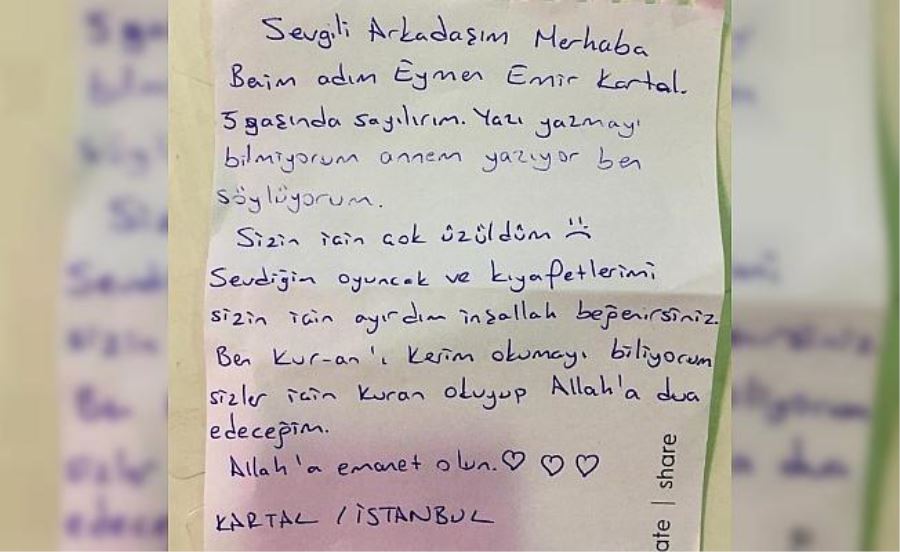 Sevgili Arkadaşım Merhaba
Beim adım Eymen Emir Kartal.
5 yaşında sayılırım. Yazı yazmayı
bilmiyorum annem yazıyor ben
söylüyorum.
Sizin için çok üzüldüm ☹
Sevdiğim oyuncak ve kıyafetlerimi
sizin için ayırdım inşallah beğenirsiniz.
Ben Kur-an'ı Kerim okumayı biliyorum
sizler için Kuran okuyup Allah'a dua
edeceğim.
Allah'a emanet olun. ♡ ♡ ♡
KARTAL / İSTANBUL
ate | share